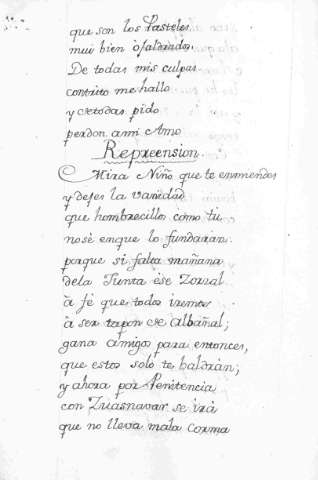 que son los Pasteles
mui bien ojaldrados.
De todas mis culpas
contrito me hallo
y de todas pido
perdon ami Amo
Reprension.
Mira Niño que te enmendes
y dejes la vanidad
que hombrecillos como tú
nosé enque lo fundarán
porque si falta mañana
dela Junta ese Zorzal
à fé que todos iremos
à ser tapon de albañal;
gana amigos para entonces,
que estos solo te baldrán;
y ahora por Penitencia
con Zuasnavar se irá
que no lleva mala corma